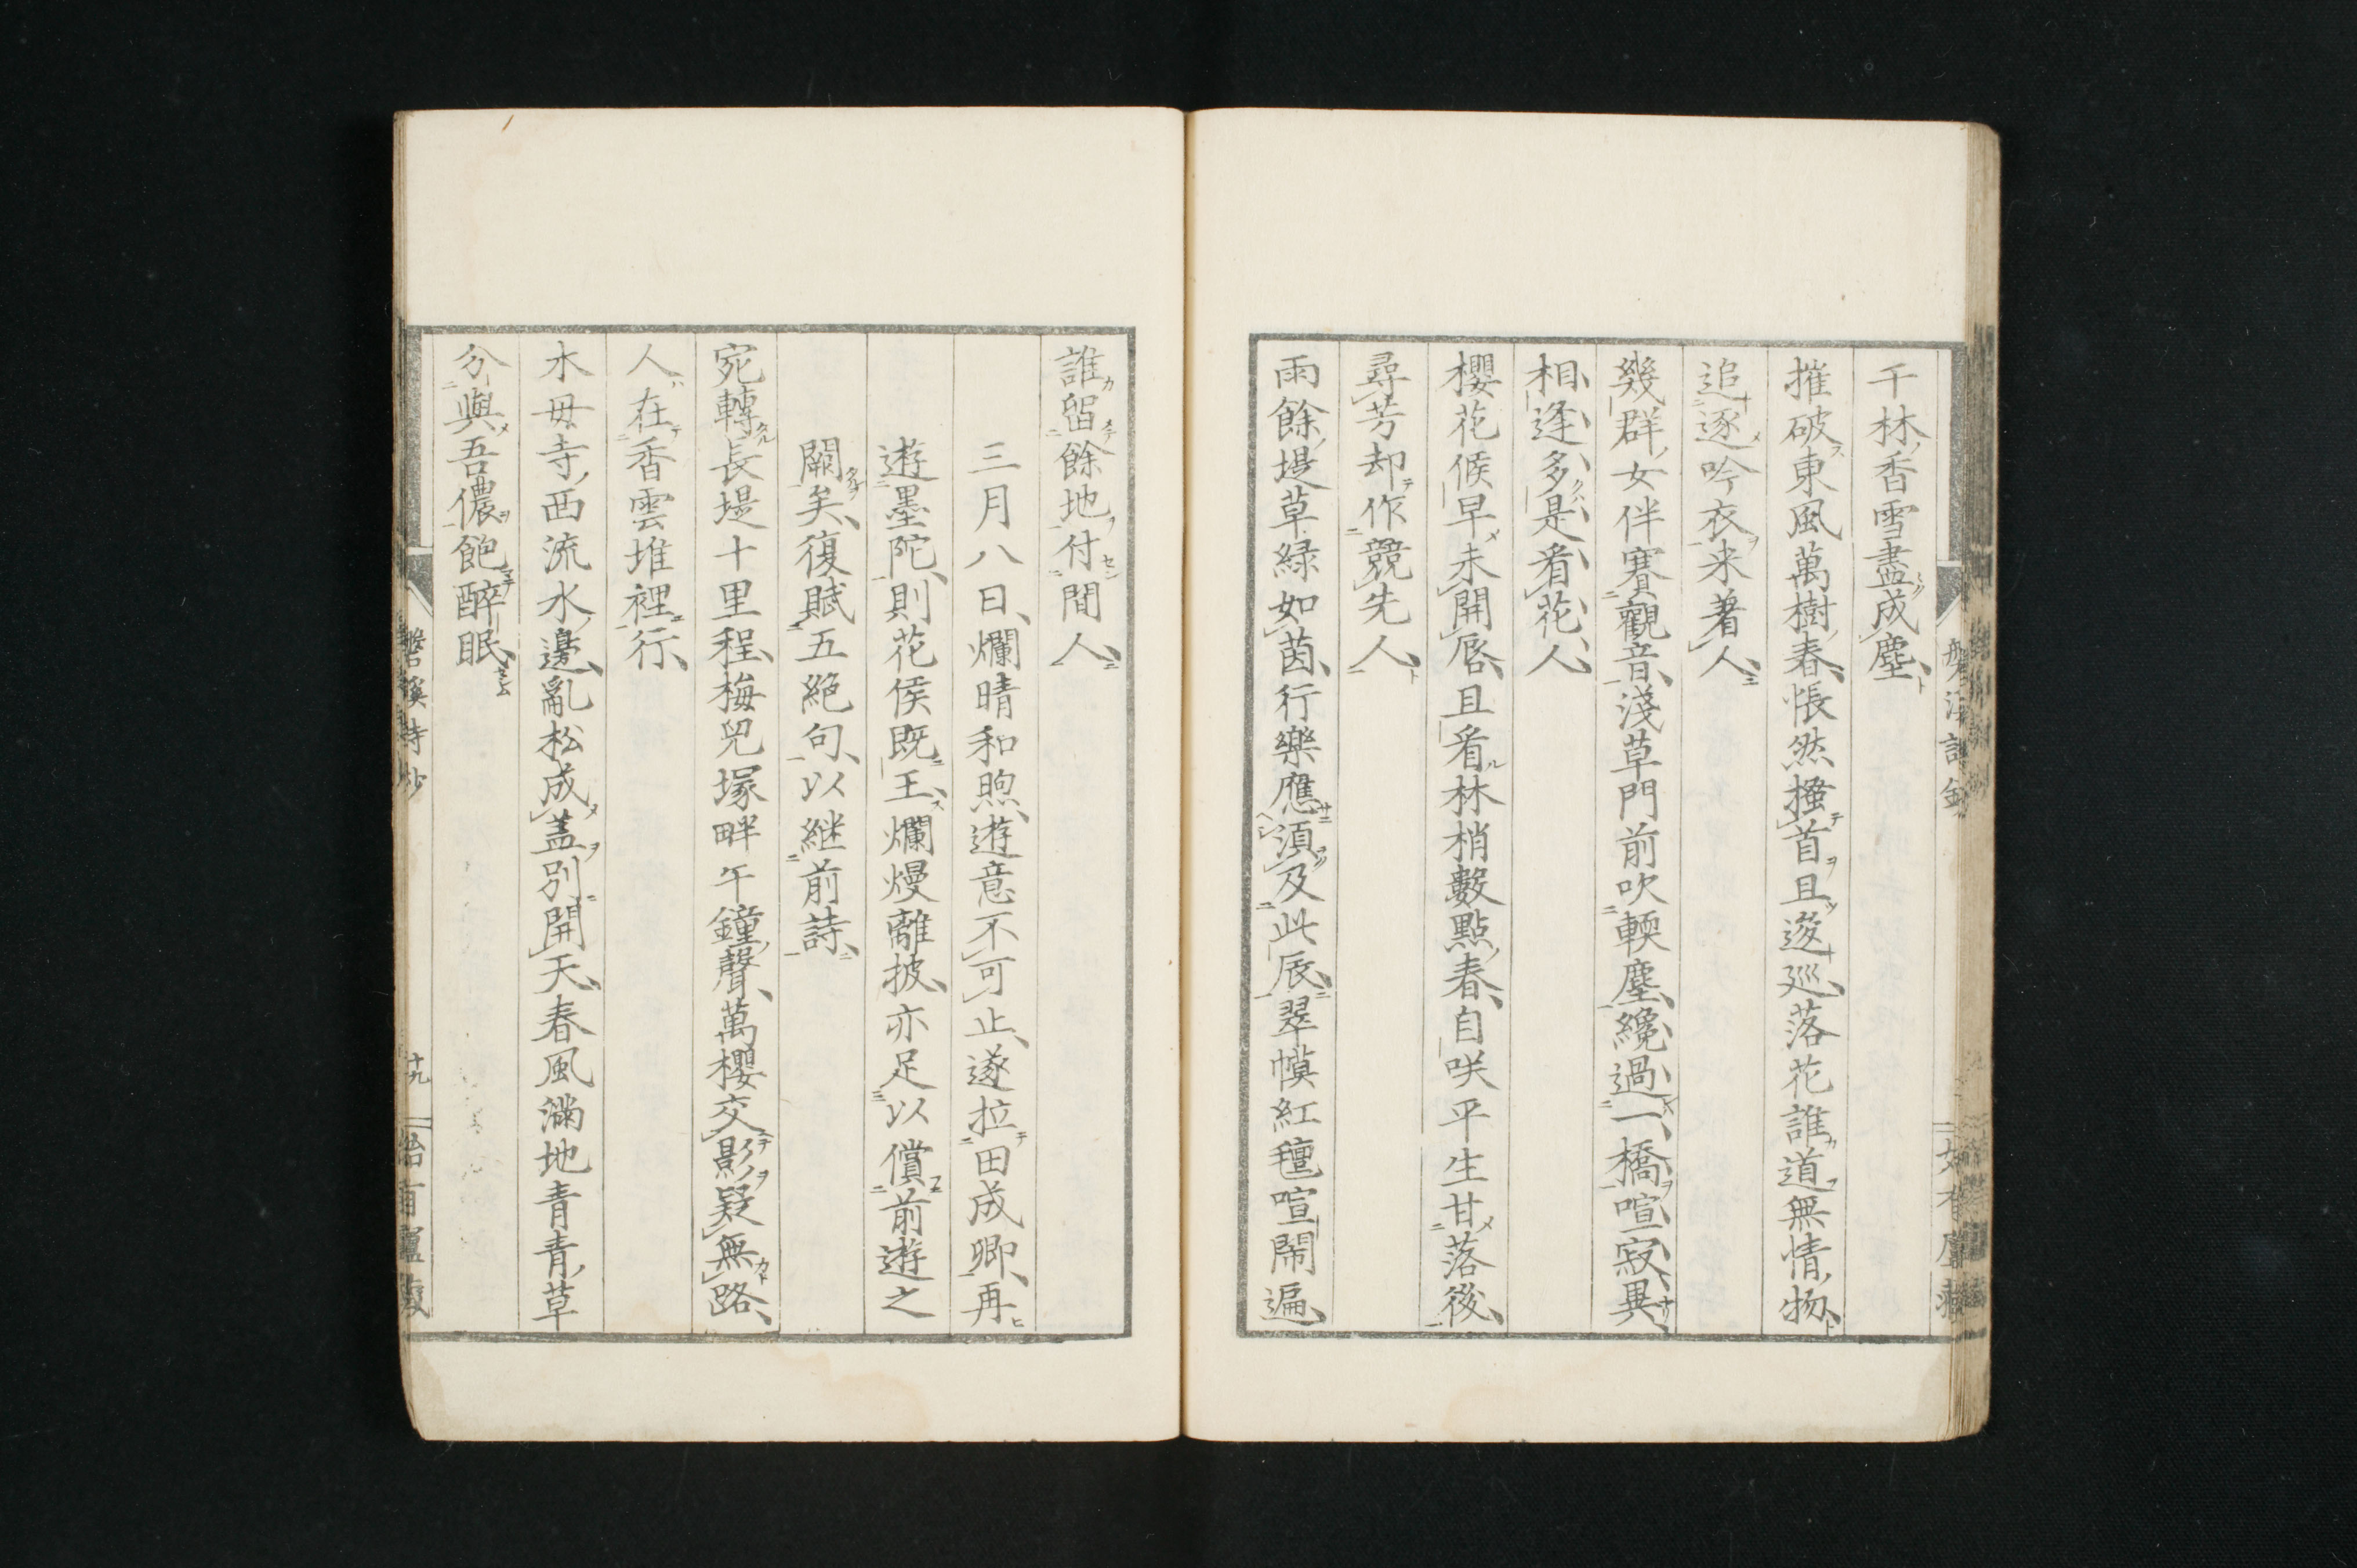 千林香雪盡成塵
摧破東風萬樹春悵然搔首且逡巡落花誰道無情物
追逐吟衣来著人
幾群女伴賽觀音淺草門前吹輭塵纔過一橋喧寂異
相逢多是看花人
櫻花候早未開唇且看林梢數點春自咲平生甘落後
尋芳却作競先人
雨餘堤草緑如茵行樂應須及此辰翠幙紅氊喧鬧遍
誰留餘地付間人
三月八日爛晴和煦遊意不可止遂拉田成卿再
遊墨陀則花侯既王爛熳離披亦足以償前遊之
闕矣復賦五絶句以継前詩
宛轉長堤十里程梅兒塚畔午鐘聲萬櫻交影疑無路
人在香雲堆裡行
水毋寺西流水邊亂松成盖別開天春風満地青青草
分與吾儂飽醉眠
十九